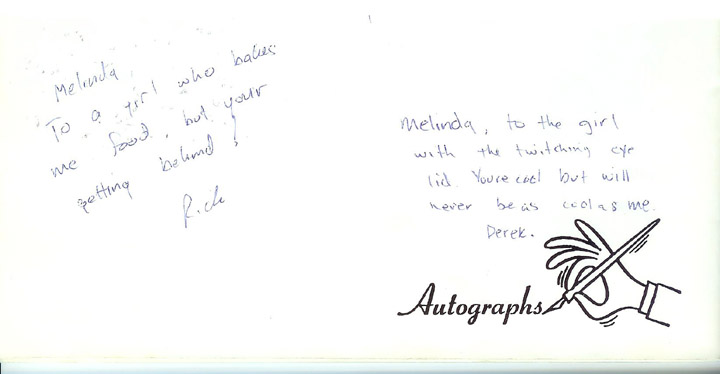 Melinda
To a girl who bakes
me food, but your
getting behind!
Rich
Melinda, to the girl
with the twitching eye
lid. Youre cool but will
never be as cool as me.
Derek.
Autographs